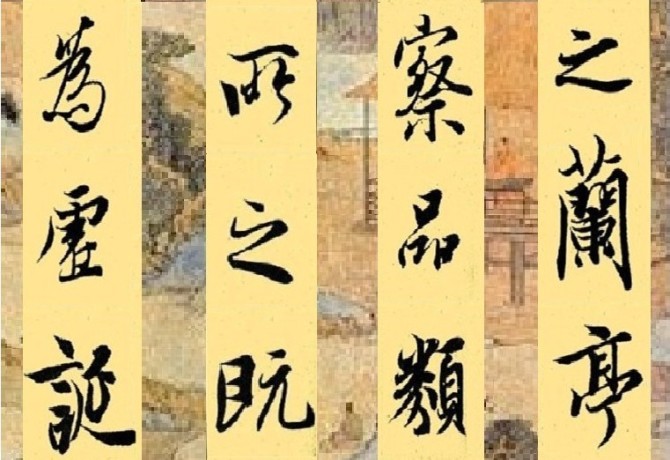 之蘭亭
察品類
所之既
為虛誕